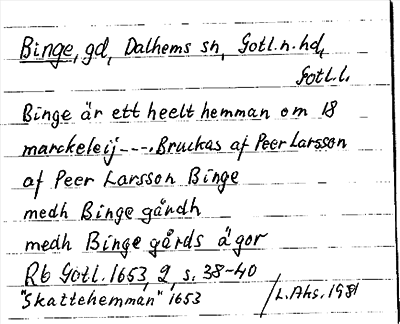 Binge, gd, Dalhems sn, Gotl. n. hd,
Gotl. l.
Binge är ett heelt hemman om 18
marckeleij ---. Bruckas af Peer Larsson
af Peer Larsson Binge
medh Binge gåndh
medh Binge gårds ägor
Rb Gotl. 1653, 2, s. 38-40
"Skattehemman" 1653
/L. Ahs. 1981